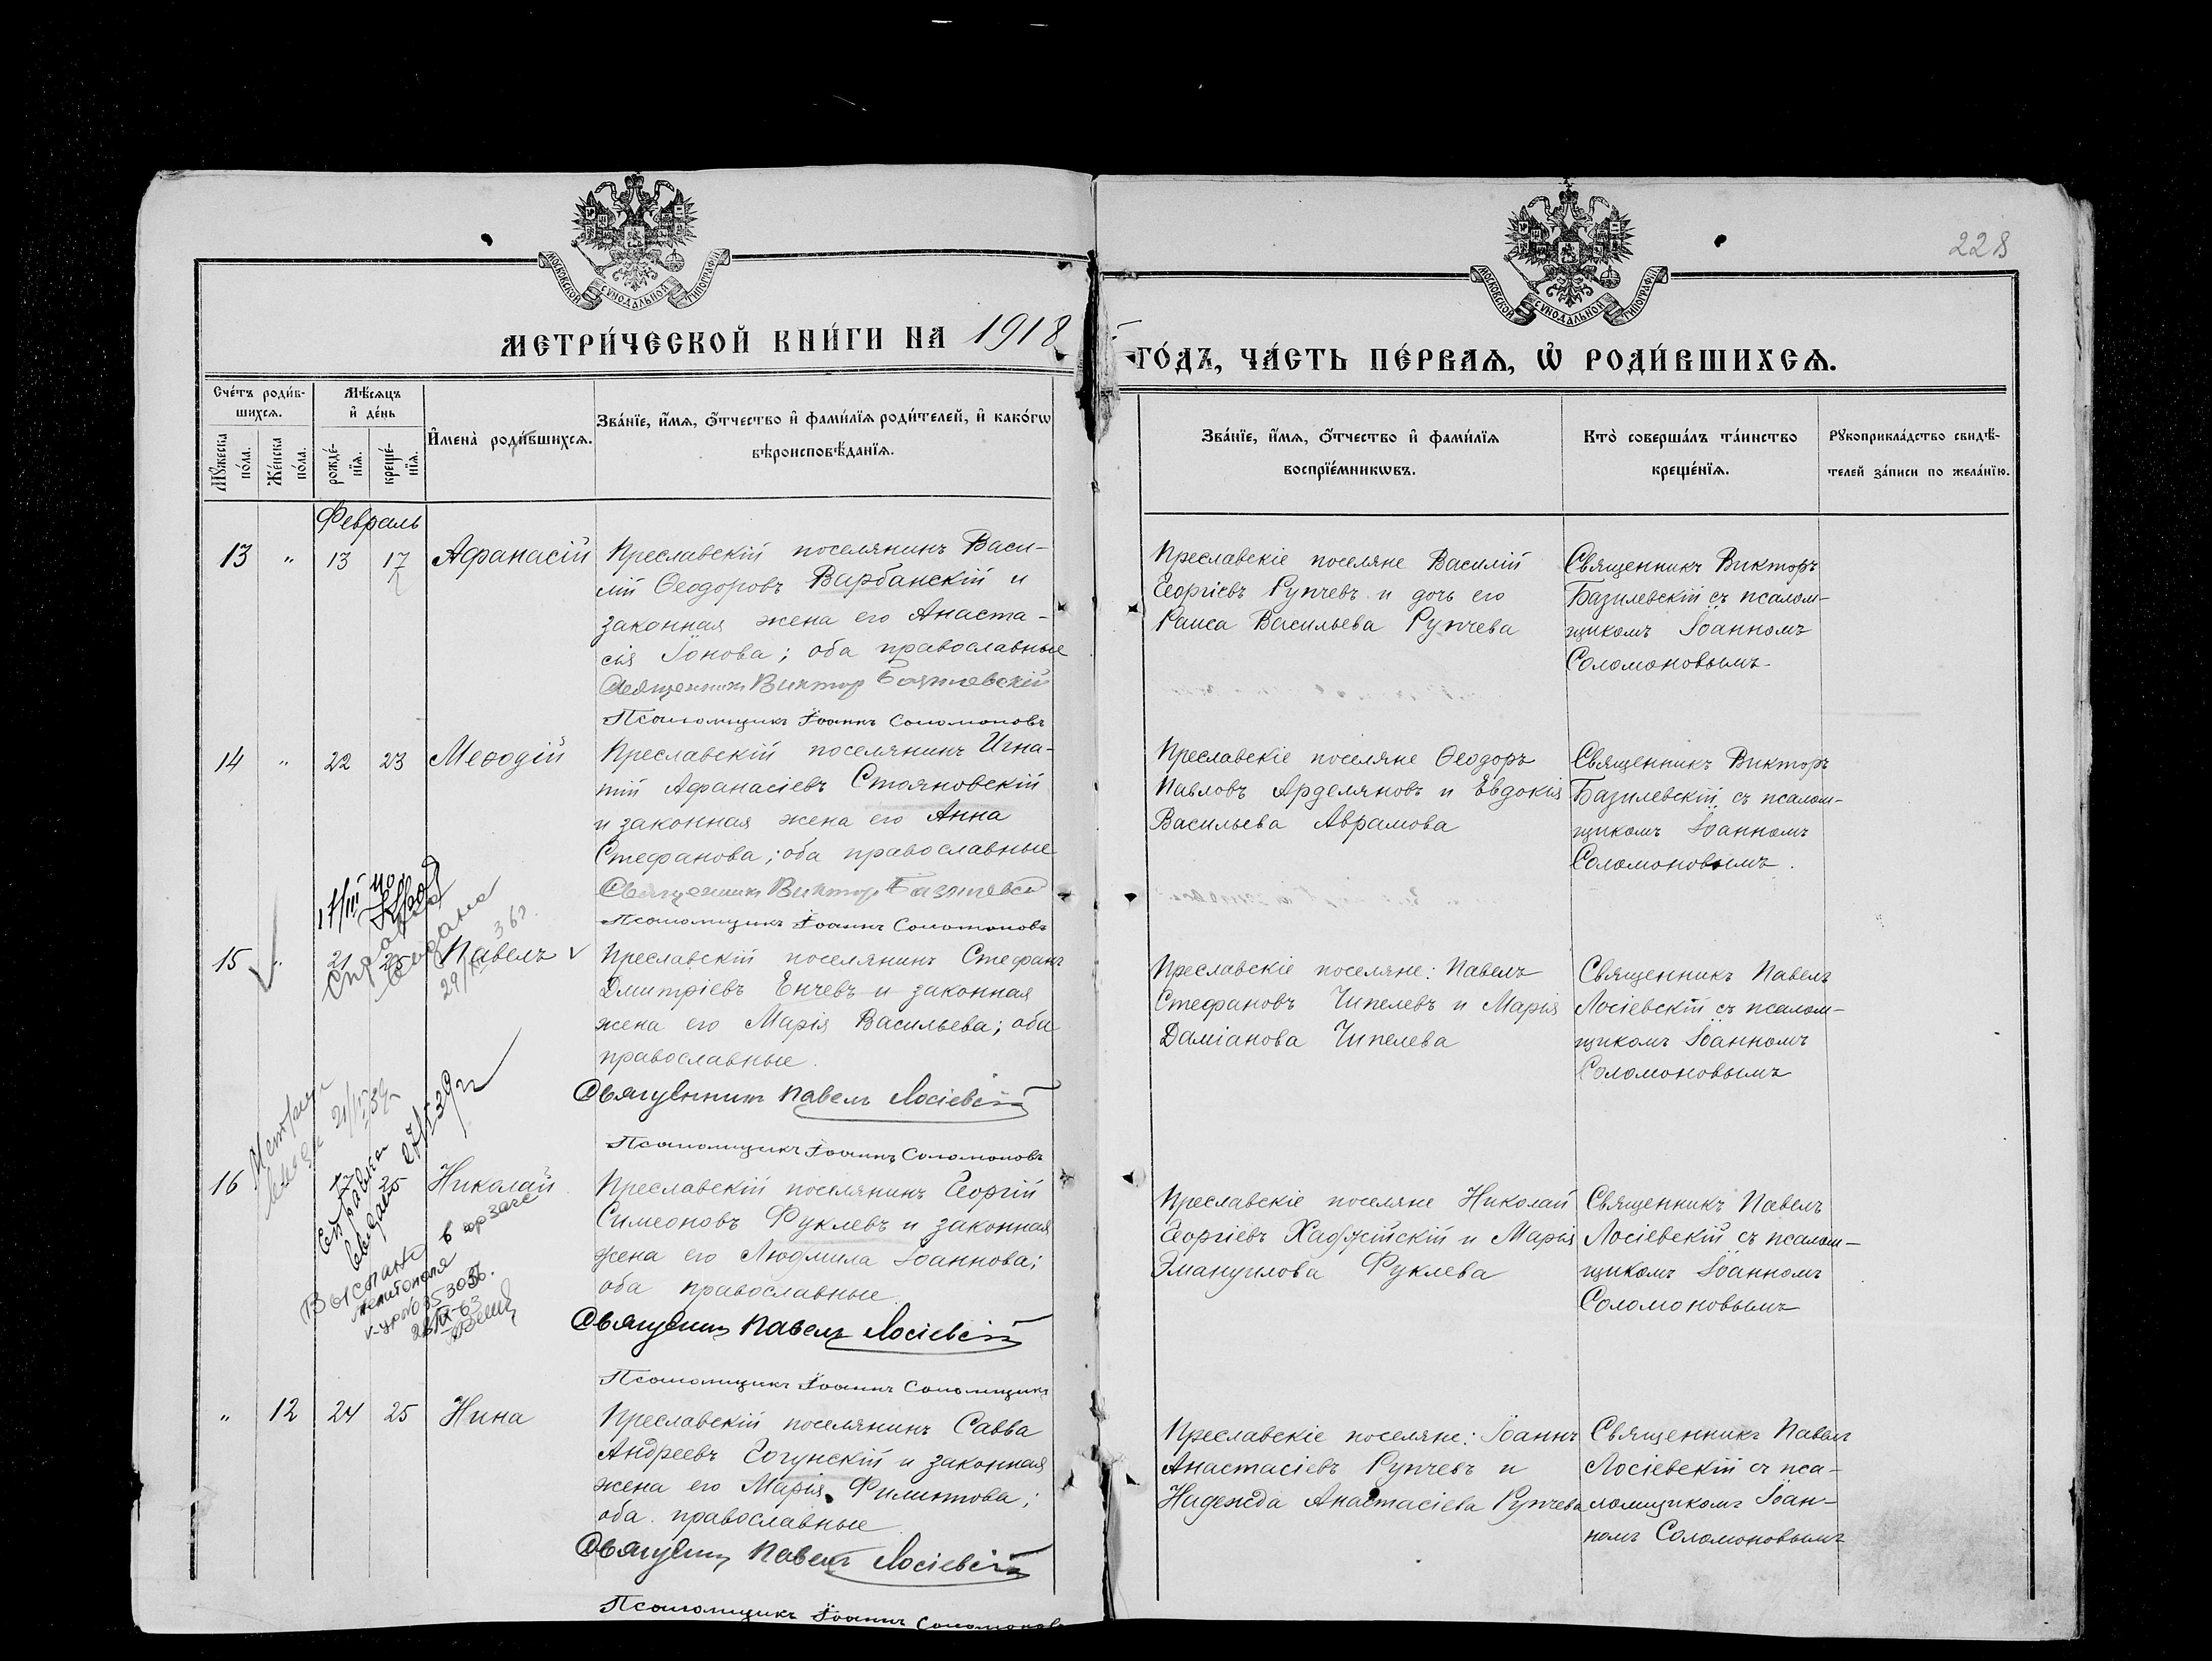 228
МОСКОВСКОЙ СѴНОДАЛЬНОЙ ТИПОГРАФІИ
МОСКОВСКОЙ СѴНОДАЛЬНОЙ ТИПОГРАФІИ
МЕТРИ́ЧЕСКОЙ КНИ́ГИ НА 1918
ГО́ДЪ, ЧА́СТЬ ПЕ́РВАѦ, Ѡ҆ РОДИ́ВШИХСѦ.
Сче́тъ роди́в-
шихсѧ.
Мꙋжеска по́ла.
Же́нска по́ла.
Мѣ́сѧцъ
и҆ де́нь
рожде́-
нїѧ.
креще́-
нїѧ.
И҆мена̀ роди́вшихсѧ.
Зва́нїе, и҆́мѧ, ѻ҆́тчество и҆ фами́лїѧ роди́телей, и҆ како́гѡ
вѣроисповѣ́данїѧ.
Зва́нїе, и҆́мѧ, ѻ҆́тчество и҆ фами́лїѧ
воспрїе́мникѡвъ.
Кто̀ соверша́лъ та́инство
креще́нїѧ.
Рꙋкоприкла́дство свидѣ́-
телей за́писи по жела́нїю.
Февраль
13 " 13 17 Афанасій
Преславскій поселянинъ Васи-
лій Ѳеодоровъ Варбанскій и
законная жена его Анаста-
сія Іонова; оба православные
Священникъ Виктор Базилевскій
Псаломщикъ Іоаннъ Соломоновъ
Преславскіе поселяне Василій
Георгіевъ Рупчевъ и дочь его
Раиса Васильева Рупчева
Священникъ Викторъ
Базилевскій съ псалом-
щикомъ Іоанномъ
Соломоновымъ
14 " 22 23 Меѳодій
Преславскій поселянинъ Игна-
тій Афанасіевъ Стояновскій
и законная жена его Анна
Стефанова; оба православные
Священникъ Виктор Базилевскій
Псаломщикъ Іоаннъ Соломоновъ
Преславскіе поселяне Ѳеодоръ
Павловъ Арделяновъ и Евдокія
Васильева Аврамова
Священникъ Викторъ
Базилевскій съ псалом-
щикомъ Іоанномъ
Соломоновымъ.
17/III
Справка
29/ 36г.
15 " 21 25 Павелъ
Преславскій поселянинъ Стефанъ
Дмитріевъ Енчевъ и законная
жена его Марія Васильева; оба
православные.
Священникъ Павелъ Лосіевскій
Псаломщикъ Іоаннъ Соломоновъ
Преславскіе поселяне: Павелъ
Стефановъ Чипелевъ и Марія
Даміанова Чипелева
Священникъ Павелъ
Лосіевскій съ псалом-
щикомъ Іоанномъ
Соломоновымъ
16 17 25 Николай
Справка
Выслано в юр загс
Мелитополя
Преславскій поселянинъ Георгій
Симеоновъ Фуклевъ и законная
жена его Людмила Іоаннова;
оба православные
Священникъ Павелъ Лосіевскій
Псаломщикъ Іоаннъ Соломщикъ
Преславскіе поселяне Николай
Георгіевъ Хаджійскій и Марія
Эмануилова Фуклева
Священникъ Павелъ
Лосіевскій съ псалом-
щикомъ Іоанномъ
Соломоновымъ
" 12 24 25 Нина
Преславскій поселянинъ Савва
Андреевъ Гогунскій и законная
жена его Марія Филиппова;
оба православные
Священникъ Павелъ Лосіевскій
Псаломщикъ Іоаннъ Соломоновъ
Преславскіе поселяне: Іоаннъ
Анастасіевъ Рупчевъ и
Надежда Анастасіева Рупчева
Священникъ Павелъ
Лосіевскій съ пса-
ломщикомъ Іоан-
номъ Соломоновымъ